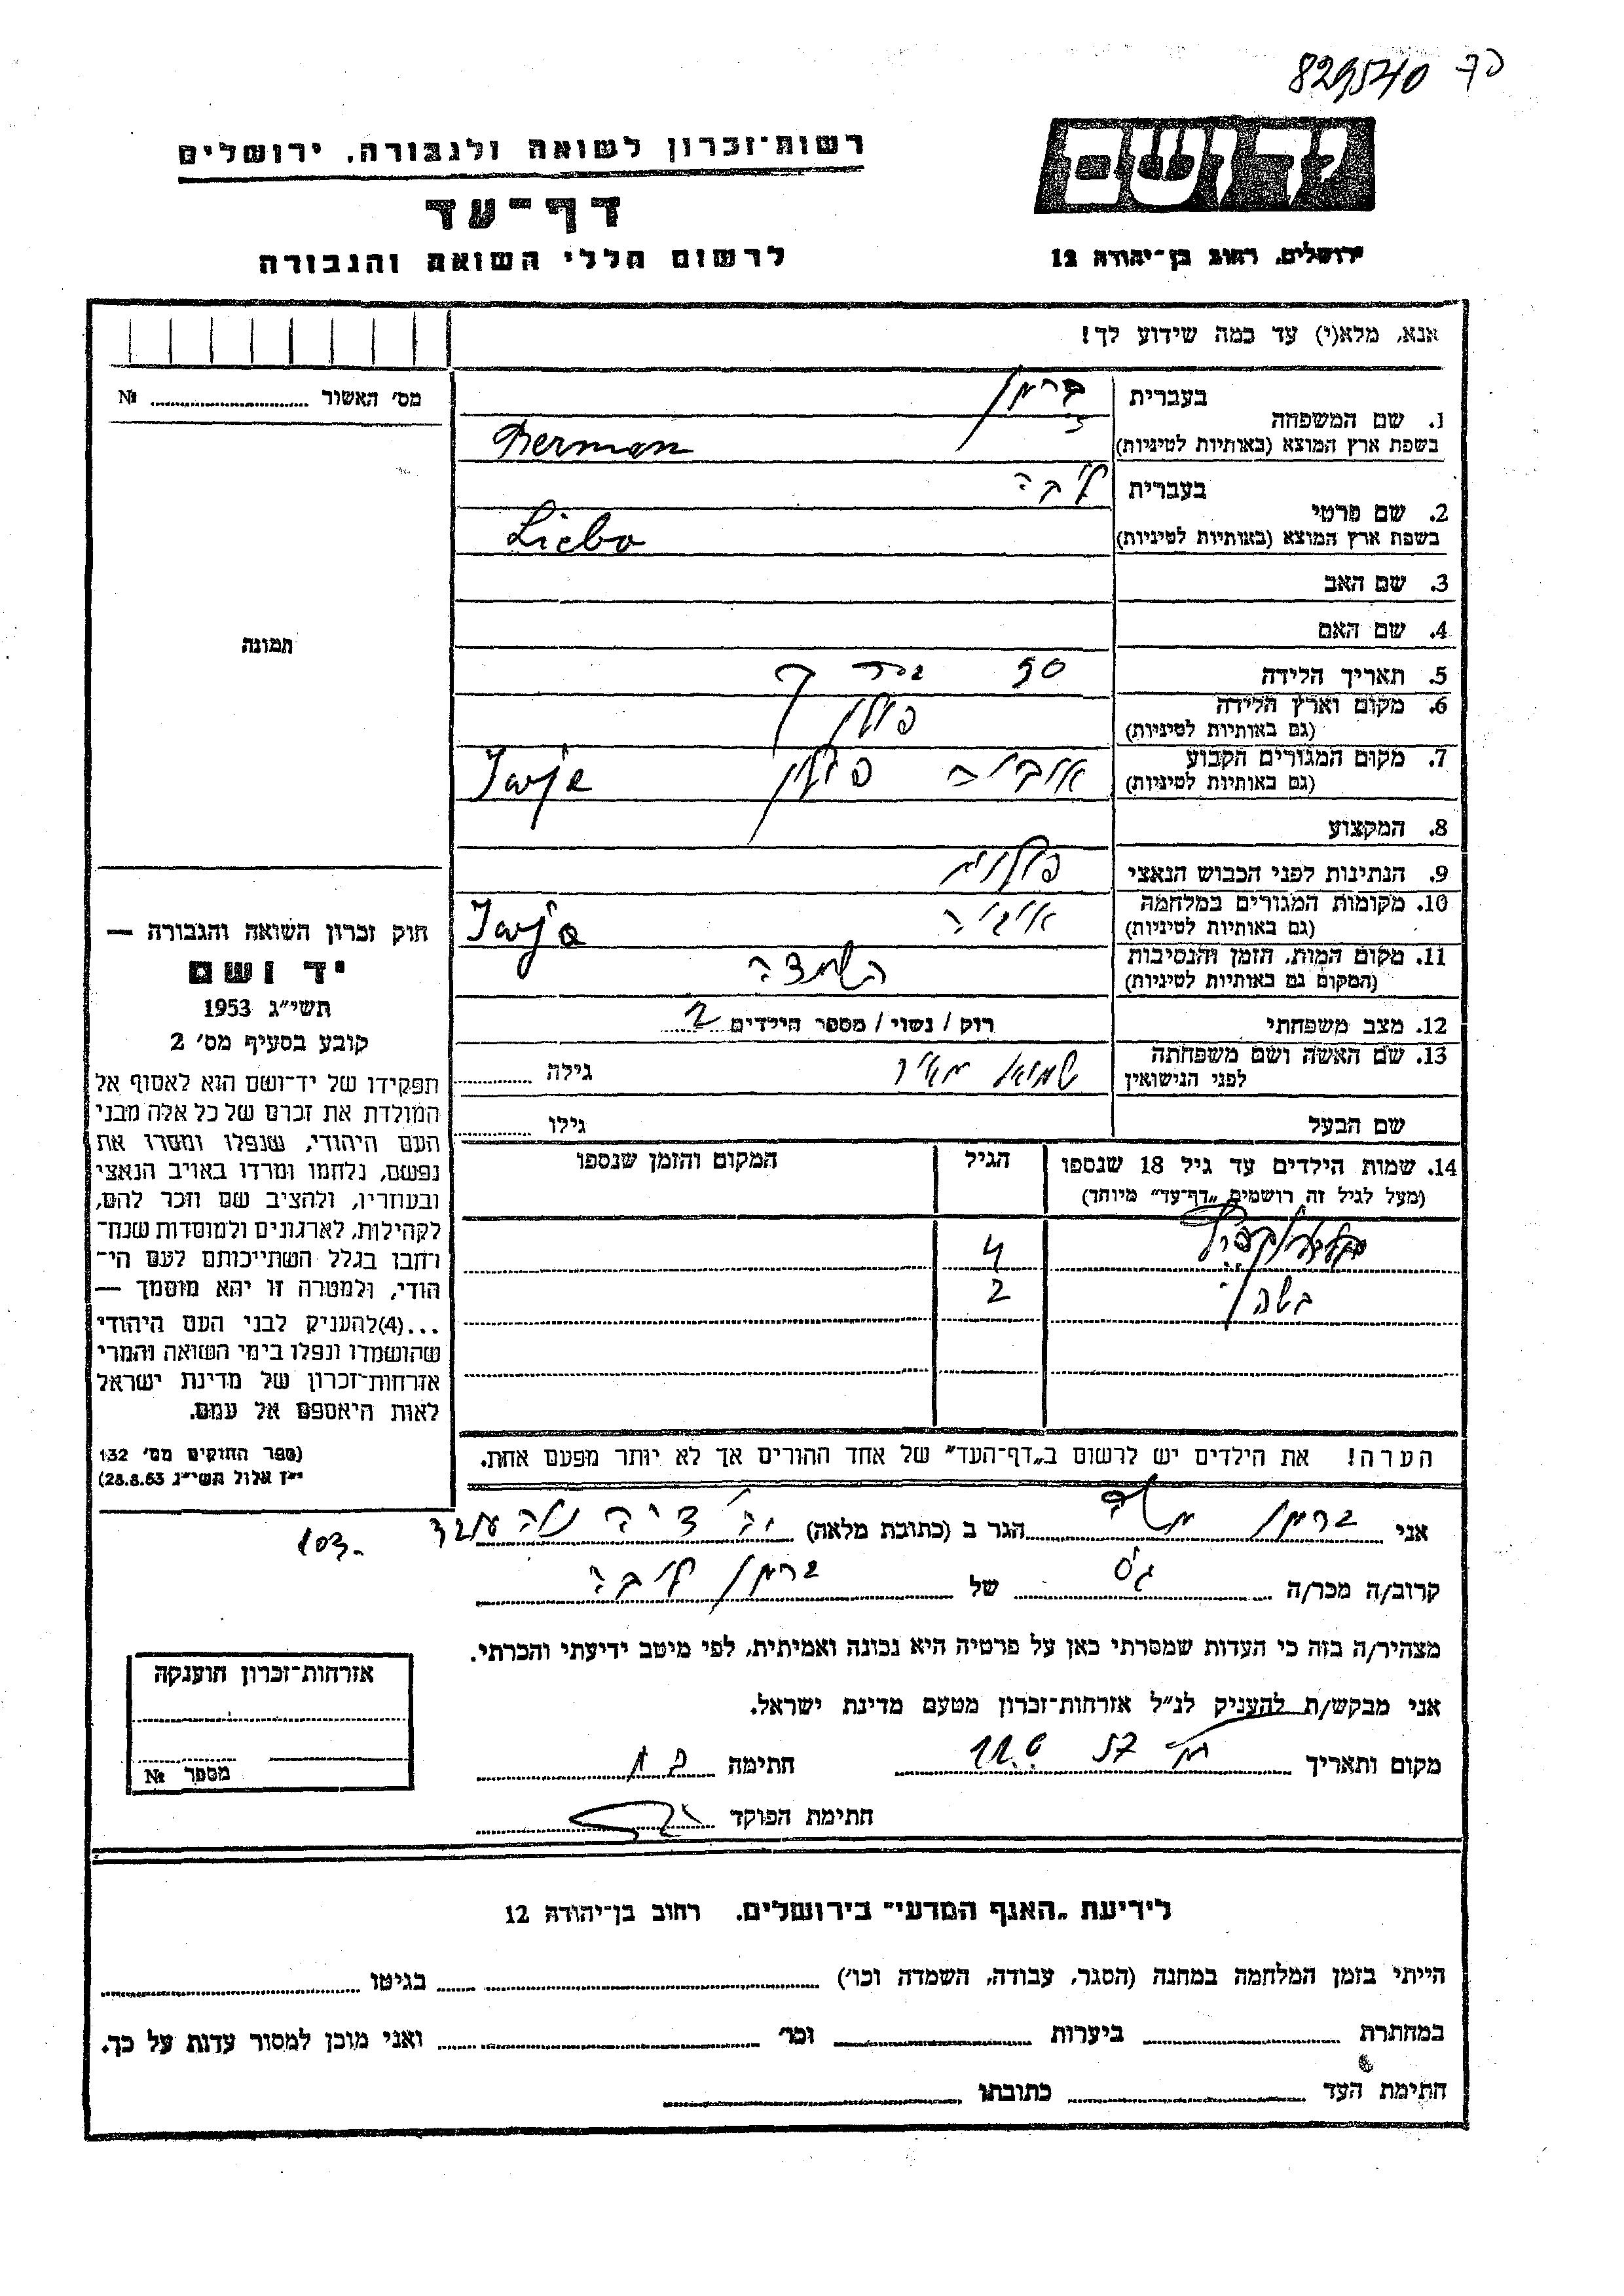 829540
רשות־זכרון לשואה ולגבורה, ירושלים
יד ושם
דף־עד
לרשום חללי השואה והגבורה
ירושלים, רחוב בן־יהודה 12
אנא, מלא(י) עד כמה שידוע לך!
מס׳ האשור ........ №
1. שם המשפחה
בעברית ברמן
בשפת ארץ המוצא (באותיות לטיניות) Berman
2. שם פרטי
בעברית ליבה
בשפת ארץ המוצא (באותיות לטיניות) Lieba
3. שם האב
4. שם האם
תמונה
5. תאריך הלידה 30
6. מקום וארץ הלידה
(גם באותיות לטיניות) פולין
7. מקום המגורים הקבוע
(גם באותיות לטיניות) פולין Iwje
8. המקצוע
9. הנתינות לפני הכבוש הנאצי פולנית
10. מקומות המגורים במלחמה
(גם באותיות לטיניות) Iwje
11. מקום המות, הזמן והנסיבות
(המקום גם באותיות לטיניות) השמדה
12. מצב משפחתי רוק / נשוי / מספר הילדים 2
13. שם האשה ושם משפחתה
לפני הנישואין שמואל גילה
שם הבעל גילו
14. שמות הילדים עד גיל 18 שנספו
(מעל לגיל זה רושמים „דף־עד״ מיוחד)
הגיל
המקום והזמן שנספו
4
2
הערה! את הילדים יש לרשום ב„דף־העד״ של אחד ההורים אך לא יותר מפעם אחת.
חוק זכרון השואה והגבורה —
יד ושם
תשי״ג 1953
קובע בסעיף מס׳ 2
תפקידו של יד־ושם הוא לאסוף אל
המולדת את זכרם של כל אלה מבני
העם היהודי, שנפלו ומסרו את
נפשם, נלחמו ומרדו באויב הנאצי
ובעוזריו, ולהציב שם וזכר להם,
לקהילות, לארגונים ולמוסדות שנח־
רחבו בגלל השתייכותם לעם הי־
הודי, ולמטרה זו יהא מוסמך —
...(4)להעניק לבני העם היהודי
שהושמדו ונפלו בימי השואה והמרי
אזרחות־זכרון של מדינת ישראל
לאות היאספם אל עמם.
(ספר החוקים מס׳ 132
י״ז אלול תשי״ג 28.8.53)
אני ברמן הגר ב (כתובת מלאה)
103-
קרוב/ה מכר/ה גיס של ברמן ליבה
מצהיר/ה בזה כי העדות שמסרתי כאן על פרטיה היא נכונה ואמיתית, לפי מיטב ידיעתי והכרתי.
אני מבקש/ת להעניק לנ״ל אזרחות־זכרון מטעם מדינת ישראל.
מקום ותאריך 57 חתימה
חתימת הפוקד
אזרחות־זכרון הוענקה
מספר №
לידיעת „האגף המדעי״ בירושלים. רחוב בן־יהודה 12
הייתי בזמן המלחמה במחנה (הסגר, עבודה, השמדה וכו׳) ........ בגיטו ........
במחתרת ........ ביערות ........ וכו׳ ........ ואני מוכן למסור עדות על כך.
חתימת העד ........ כתובתו ........